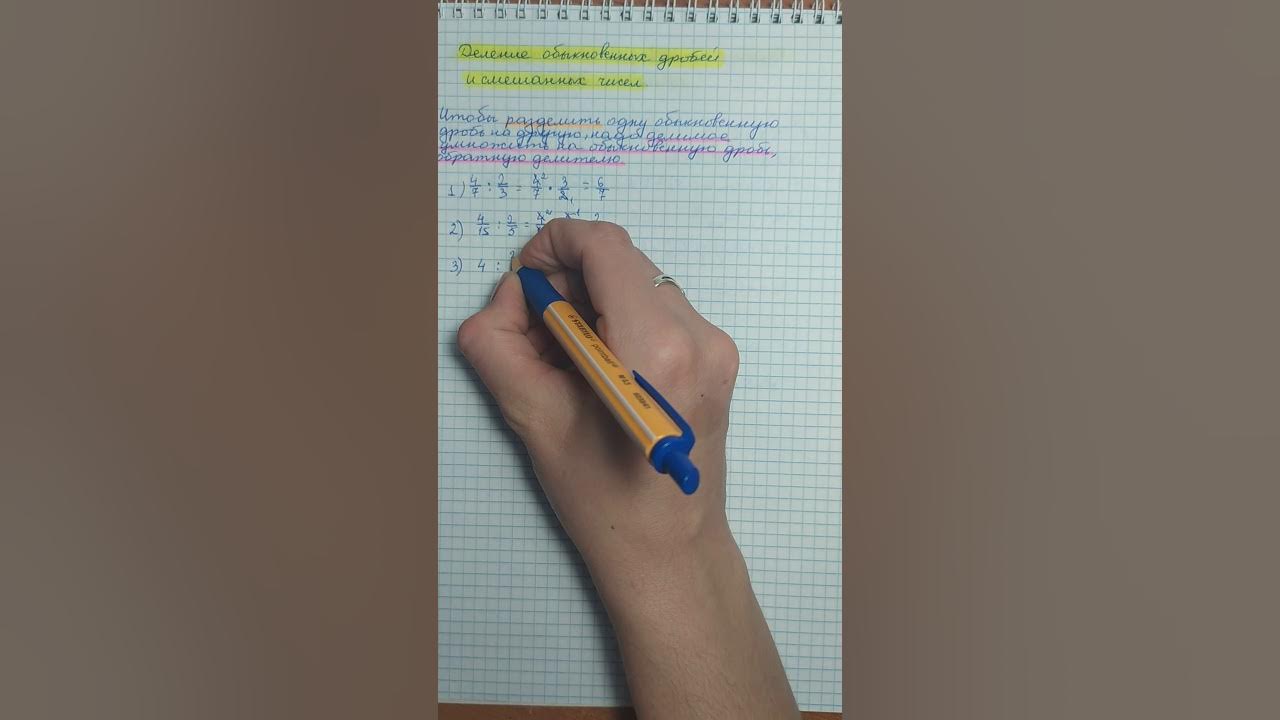 Деление обыкновенных дробей
и смешанных чисел
Чтобы разделить одну обыкновенную
дробь на другую, надо делимое
умножить на обыкновенную дробь,
обратную делителю.
1) 4/7 : 2/3 = 4²/7 · 3/2₁ = 6/7
2) 4/15 : 2/5 = 4²
3) 4 :
STABILO pointball